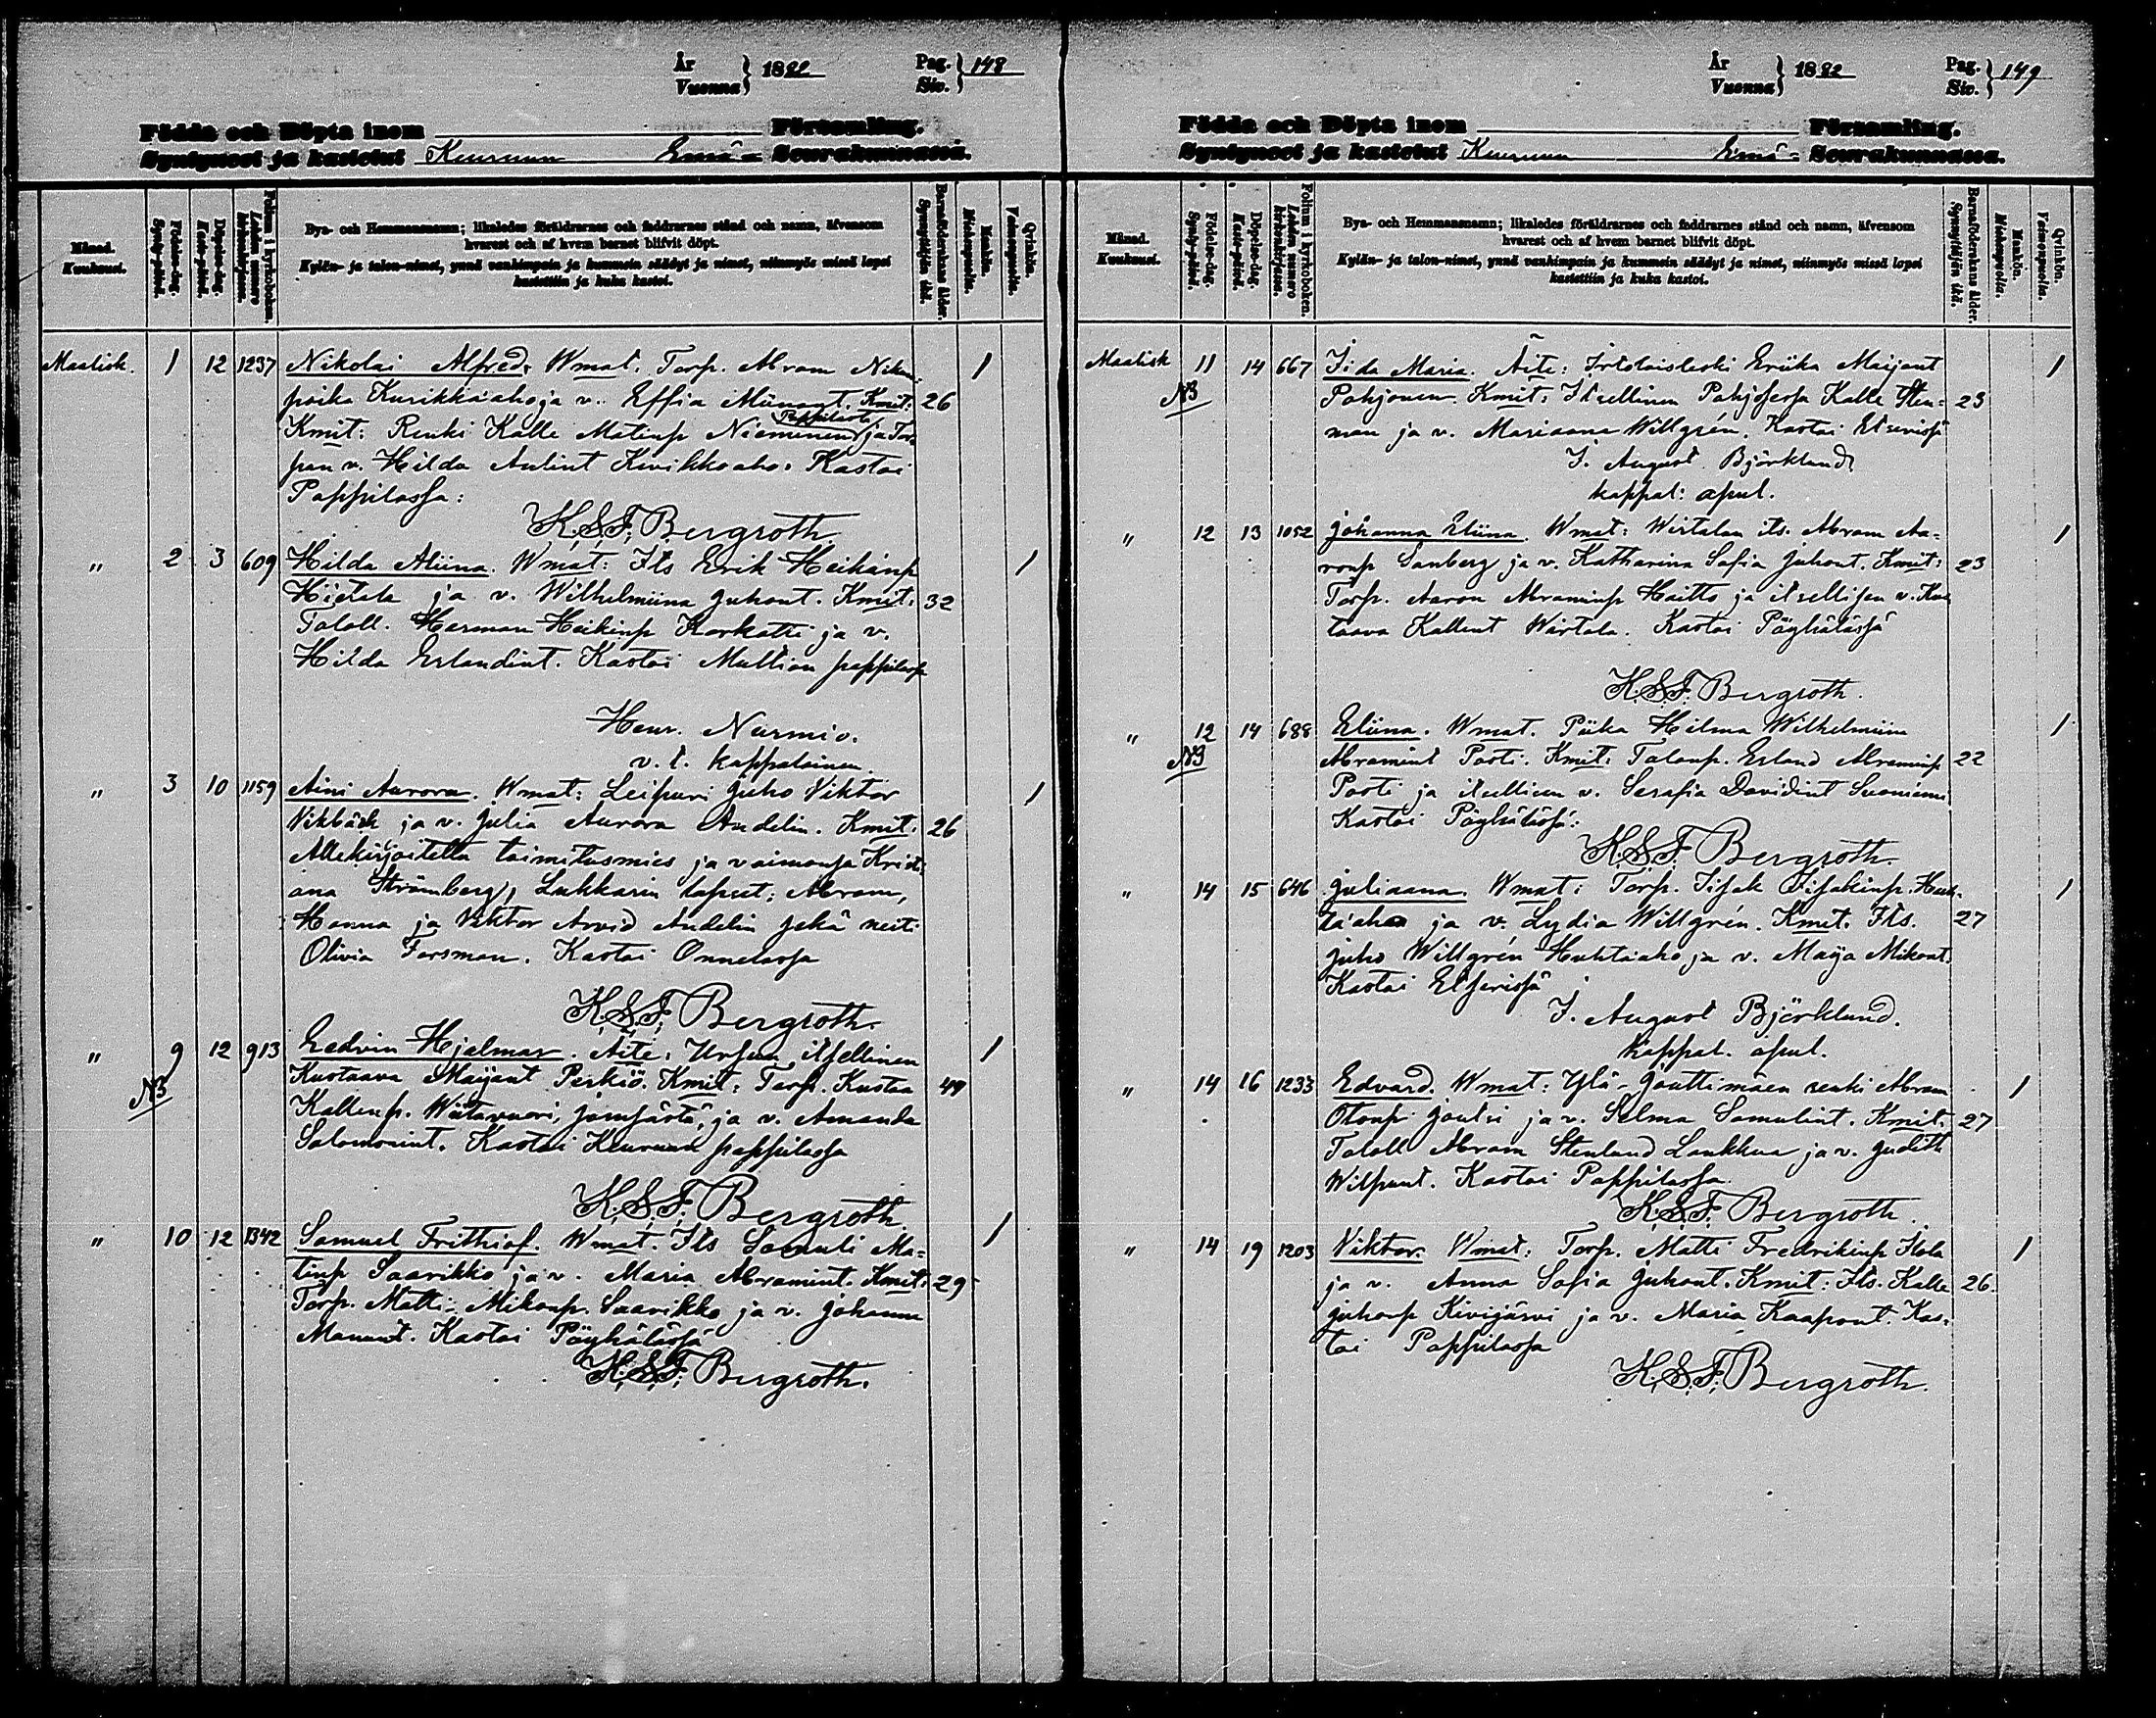 År
Vuonna } 1882 Pag.
Siv. } 148
Födda och Döpta inom Församling.
Syntyneet ja kastetut Keuruun Emä- Seurakunnassa.
Månad.
Kuukausi.
Födelse-dag.
Synty-päivä.
Döpelse-dag.
Kaste-päivä.
Folium i kyrkoboken.
Lehden numero
kirkonkirjassa.
Bya- och Hemmansnamn; likaledes föräldrarnes och faddrarnes stånd och namn, äfvensom
hvarest och af hvem barnet blifvit döpt.
Kylän- ja talon-nimet, ynnä vanhimpain ja kummein säädyt ja nimet, niinmyös missä lapsi
kastettiin ja kuka kastoi.
Barnaföderskans ålder.
Synnyttäjän ikä.
Mankön.
Miehenpuolta.
Qvinkön.
Vaimonpuolta.
Maalisk. 1 12 1237 Nikolai Alfred. Wmat. Torp. Abram 1
poika Kurikkaaho ja v. Effia Kmit: 26
Pappilasta
Kmit: Renki Kalle Matinp Nieminen ja Tor
pan v. Hilda Kivikkoaho. Kastoi
Pappilassa:
K.S.F. Bergroth.
" 2 3 609 Hilda Aliina. Wmat: Its Erik Heikinp 1
Hietala ja v. Wilhelmiina Juhont. Kmit: 32
Taloll. Herman Heikinp Korkatti ja v.
Hilda Erlandint. Kastoi Multian pappilassa
Henr. Nurmio.
v. t. kappalainen.
" 3 10 1159 Aini Aurora. Wmat: Leipuri Juho Viktor 1
Vikbäck ja v. Julia Aurora Andelin. Kmit. 26
Allekirjoitettu toimitusmies ja vaimonsa Kristi
ana Strömberg, Lukkarin lapset: Abram,
Hanna ja Viktor Arvid Andelin sekä neiti
Olivia Forsman. Kastoi Onnelassa
K.S.F. Bergroth.
" 9 12 913 Eedvin Hjalmar. Äite: Ursun itsellinen 1
NB Kustaava Maijant Perkiö. Kmit: Torp. Kustaa 49
Kallenp. Wiitavuori, Jämsästä, ja v. Amanda
Salomonint. Kastoi Keuruun pappilassa
K.S.F. Bergroth.
" 10 12 1342 Samuel Frithiof. Wmat. Its Samuli Ma- 1
tinp Saarikko ja v. Maria Abramint. Kmit: 29
Torp. Matti Mikonp. Saarikko ja v. Johanna
Manunt. Kastoi Pöyhölässä
K.S.F. Bergroth.
År
Vuonna } 1882 Pag.
Siv. } 149
Födda och Döpta inom Församling.
Syntyneet ja kastetut Keuruun Emä- Seurakunnassa.
Månad.
Kuukausi.
Födelse-dag.
Synty-päivä.
Döpelse-dag.
Kaste-päivä.
Folium i kyrkoboken.
Lehden numero
kirkonkirjassa.
Bya- och Hemmansnamn; likaledes föräldrarnes och faddrarnes stånd och namn, äfvensom
hvarest och af hvem barnet blifvit döpt.
Kylän- ja talon-nimet, ynnä vanhimpain ja kummein säädyt ja nimet, niinmyös missä lapsi
kastettiin ja kuka kastoi.
Barnaföderskans ålder.
Synnyttäjän ikä.
Mankön.
Miehenpuolta.
Qvinkön.
Vaimonpuolta.
Maalisk 11 14 667 Iida Maria. Äite: Irtolaisleski Eriika Maijant 1
NB Pohjonen. Kmit: Itsellinen Kalle Sten- 23
man ja v. Mariaana Willgrén. Kastoi Etserissä
J. August Björklund
kappal: apul.
" 12 13 1052 Johanna Eliina. Wmat: Wirtalan its. Abram Aa- 1
ronp Sanberg ja v. Katharina Sofia Juhont. Kmit: 23
Torp. Aaron Abraminp Haitto ja itsellisen v. Kus
taava Kallent Wirtala. Kastoi Pöyhölässä
K.S.F. Bergroth.
" 12 14 688 Eliina. Wmat. Piika Hilma Wilhelmiina 1
NB Abramint Pooti. Kmit: Talonp. Erland Abraminp 22
Pooti ja itsellisen v. Serafia Davidint Suoniemi
Kastoi Pöyhölässä:
K.S.F. Bergroth.
" 14 15 646 Juliaana. Wmat: Torp. Iisak Iisakinp. Huh- 1
ta'aho ja v. Lydia Willgrén. Kmit. Its. 27
Juho Willgrén Huhtaaho ja v. Maija Mikont.
Kastoi Etserissä
J. August Björklund.
Kappal. apul.
" 14 16 1233 Edvard. Wmat: Ylä-Jouttimäen renki Abram 1
Otonp Joutsi ja v. Selma Samulint. Kmit. 27
Taloll Abram Stenlund Loukkua ja v. Judith
Wilpunt. Kastoi Pappilassa.
K.S.F. Bergroth.
" 14 19 1203 Viktor. Wmat: Torp. Matti Fredrikinp 1
ja v. Anna Sofia Juhont. Kmit: Its. Kalle 26.
Juhonp Kivijärvi ja v. Maria Kaapont. Kas-
toi Pappilassa
K.S.F. Bergroth.